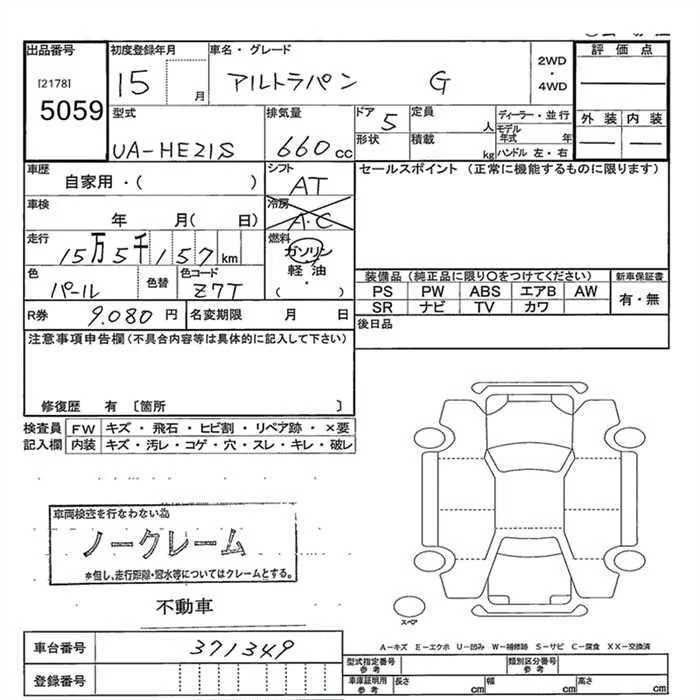 出品番号 初度登録年月 車名・グレード 評価点
[2178] 15 月 アルトラパン G 2WD・4WD
5059
型式 排気量 ドア 5 定員 人 ディーラー・並行 外装 内装
UA-HE21S 660cc 形状 積載 kg モデル年式 年
ハンドル 左・右
車歴 シフト セールスポイント (正常に機能するものに限ります)
自家用・( ) AT
車検 冷房
年 月( 日) A・C
走行 燃料
15万5千157km ガソリン
色 色替 色コード 軽油 装備品 (純正品に限り○をつけてください) 新車保証書
パール Z7T ・( ) PS PW ABS エアB AW 有・無
SR ナビ TV カワ
R券 9.080円 名変期限 月 日 後日品
注意事項申告欄(不具合内容等は具体的に記入して下さい)
修復歴 有 〔箇所 〕
検査員 FW キズ・飛石・ヒビ割・リペア跡・×要
記入欄 内装 キズ・汚レ・コゲ・穴・スレ・キレ・破レ
車両検査を行なわない為
ノークレーム
※但し、走行距離・冠水等についてはクレームとする。
不動車
スペア
A-キズ E-エクボ U-凹み W-補修跡 S-サビ C-腐食 XX-交換済
車台番号 371349
型式指定番号 参考 類別区分番号 参考
登録番号 車庫証明用 参考 長さ cm 幅 cm 高さ cm